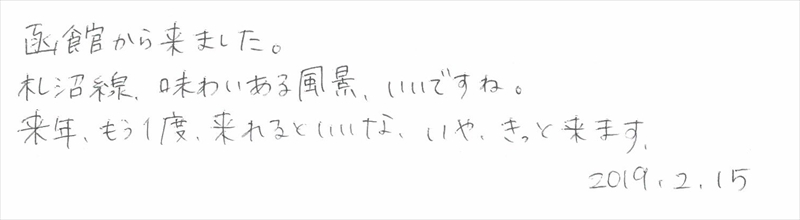 函館から来ました。
札沼線、味わいある風景、いいですね。
来年、もう1度、来れるといいな、いや、きっと来ます、
2019.2.15